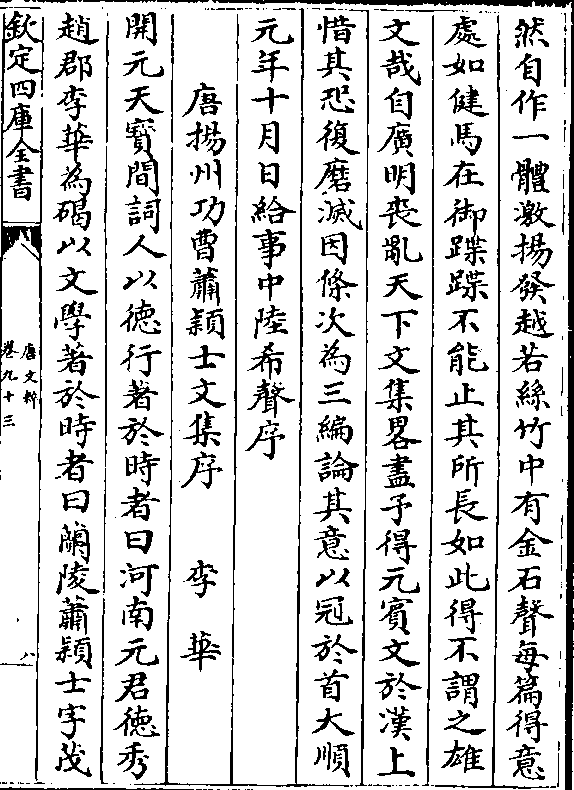 然自作一體激揚發越若絲竹中有金石聲每篇得意
處如健馬在御蹀蹀不能止其所長如此得不謂之雄
文哉自廣明喪亂天下文集畧盡予得元賓文於漢上
惜其恐復磨滅因條次為三編論其意以冠於首大順
元年十月日給事中陸希聲序
唐揚州功曹蕭穎士文集序 李華
開元天寶間詞人以德行著於時者曰河南元君德秀
趙郡李華為碣以文學著於時者曰蘭陵蕭穎士字茂
欽定四庫全書
唐文粹
卷九十三
八